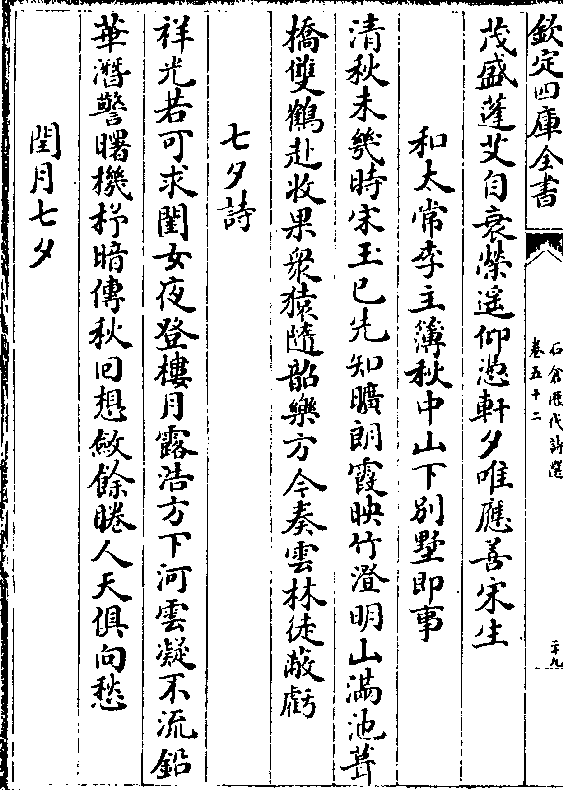 欽定四庫全書
石倉歷代詩選
卷五十二
二十九
茂盛蓬艾自衰榮遥仰慿軒夕唯應善宋生
和太常李主簿秋中山下别墅即事
清秋未幾時宋玉已先知曠朗霞映竹澄明山滿池葺
橋雙鶴赴收果衆猿隨韶樂方今奏雲林徒蔽虧
七夕詩
祥光若可求閨女夜登樓月露浩方下河雲凝不流鉛
華潛警曙機杼暗傳秋回想斂餘睠人天俱向愁
閏月七夕